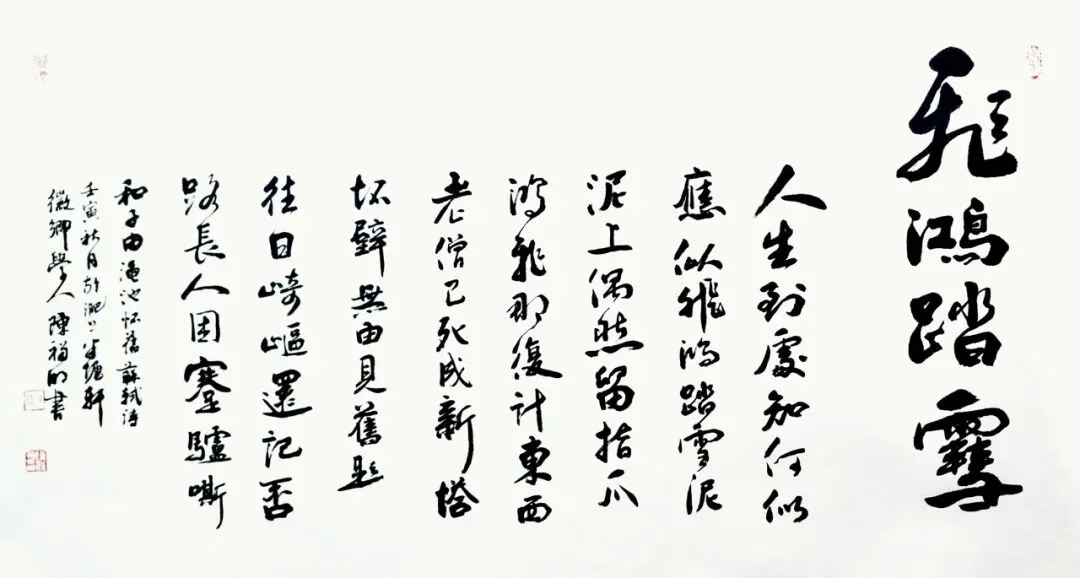 飛鴻踏雪
人生到處知何似
應似飛鴻踏雪泥
泥上偶然留指爪
鴻飛那復計東西
老僧已死成新塔
坏壁無由見舊題
往日崎嶇還記否
路長人困蹇驢嘶
和子由澠池怀舊蘇軾詩
壬寅秋月於淝上半塘軒
學人陳福明書